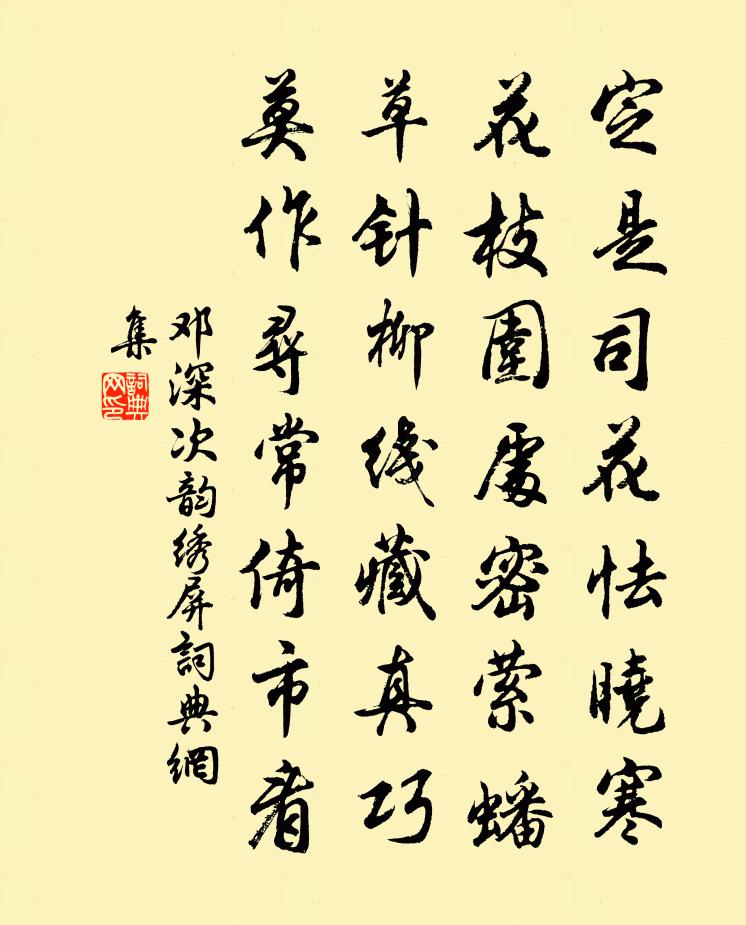 定是司花怯曉寒
花枝圍處密縈蟠
草针柳线藏真巧
莫作尋常倚市看
邓深次韵绣屏詞典網
集
詞典
网印